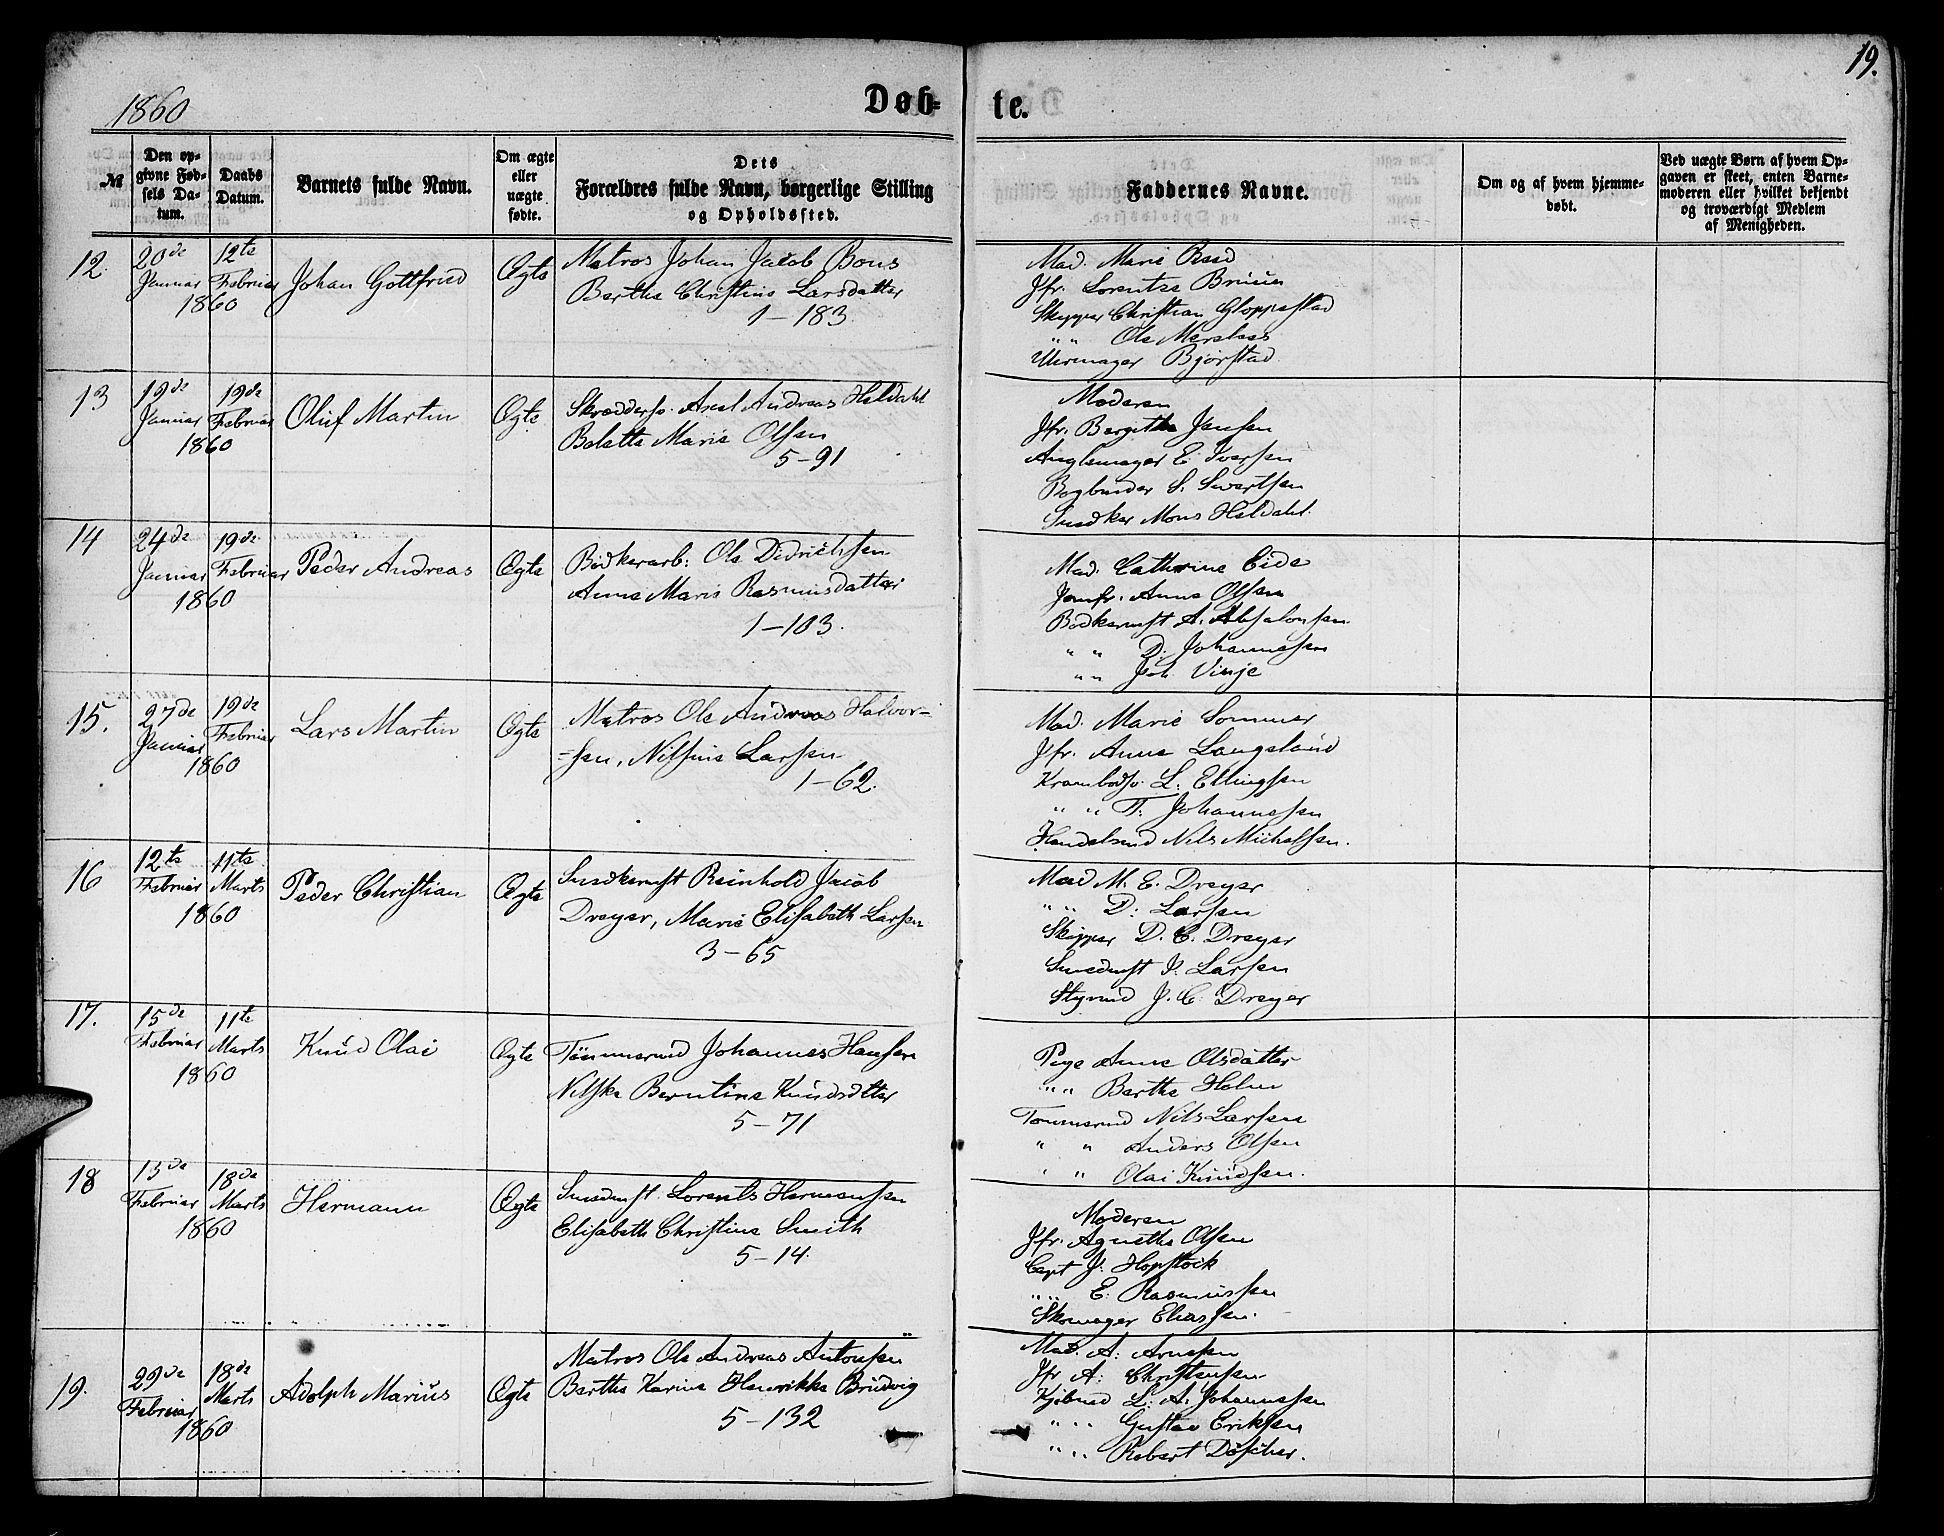 19.
1860
Døb- te.
№
Den op-
givne Fød-
sels Da-
tum.
Daabs
Datum.
Barnets fulde Navn.
Om ægte
eller
uægte
fødte.
Dets
Forældres fulde Navn, borgerlige Stilling
og Opholdssted.
Faddernes Navne.
Om og af hvem hjemme-
døbt.
Ved uægte Børn af hvem Op-
gaven er skeet, enten Barne-
moderen eller hvilket bekjendt
og troværdigt Medlem
af Menigheden.
12.
20de
Januar
12te
Februar
1860
Johan Gottfried
Ægte
Matros Johan Jacob Bons
Berthe Christine Larsdatter
1-183
Mad. Marie
Jfr. Lorentze Bruun
Skipper Christian Gloppestad
" " Ole
Uhrmager Bjørstad
13
19de
Januar
19de
Februar
1860
Oluf Martin
Ægte
Skrædders. Axel Andreas Heldahl
Bolette Marie Olsen
5-91
Moderen
Jfr. Bergithe Jansen
E. Iversen
Bogbinder S. Sivertsen
Snedker Mons Heldahl.
14
24de
Januar
19de
Februar
1860
Peder Andreas
Ægte
Bødkerarb: Ole Didrichsen
Anne Marie Rasmusdatter
1-103.
Mad. Cathrine Eide
Jomfr. Anne Olsen
Bødkermst A. Absalonsen
" " D. Johannessen
" " Joh. Vinje
15.
27de
Januar
19de
Februar
1860
Lars Martin
Ægte
Matros Ole Andreas Halvor-
=sen, Nilsine Larsen
1-62.
Mad. Marie Sommer
Jfr. Anne Langeland
Krambods. L. Ellingsen
" " T. Johannessen
Handelsmd Nils Michelsen.
16
12te
Februar
11te
Marts
1860
Peder Christian
Ægte
Snedkermst Reinhold Jacob
Dreyer, Marie Elisabeth Larsen
3-65
Mad M. E. Dreyer
" " D: Larsen
Skipper D. C. Dreyer
Snedmst J. Larsen
Styrmd J. C. Dreyer
17.
15de
Februar
11te
Marts
1860
Knud Olai
Ægte
Tømmermd Johannes Hansen
Nilske Berntine Knudsdtter
5-71
Pige Anne Olsdatter
" " Berthe Holm
Tømmermd Nils Larsen
" " Anders Olsen
" " Olai Knudsen.
18
13de
Februar
18de
Marts
1860
Hermann
Ægte
Snedmst. Lorents Hermansen
Elisabeth Christine Smith
5-14.
Moderen
Jfr. Agnethe Olsen
Capt J. Hopstock
" " E. Rasmussen
Skomager Eliassen.
19.
29de
Februar
18de
Marts
1860
Adolph Marius
Ægte
Matros Ole Andreas Antonsen
Berthe Karine Henrikke Brudvig
5-132
Mad. A: Arnesen
Jfr A: Christensen
Kjøbmd L. A. Johannessen
" " Gustav Eriksen
" " Robert Døscher.